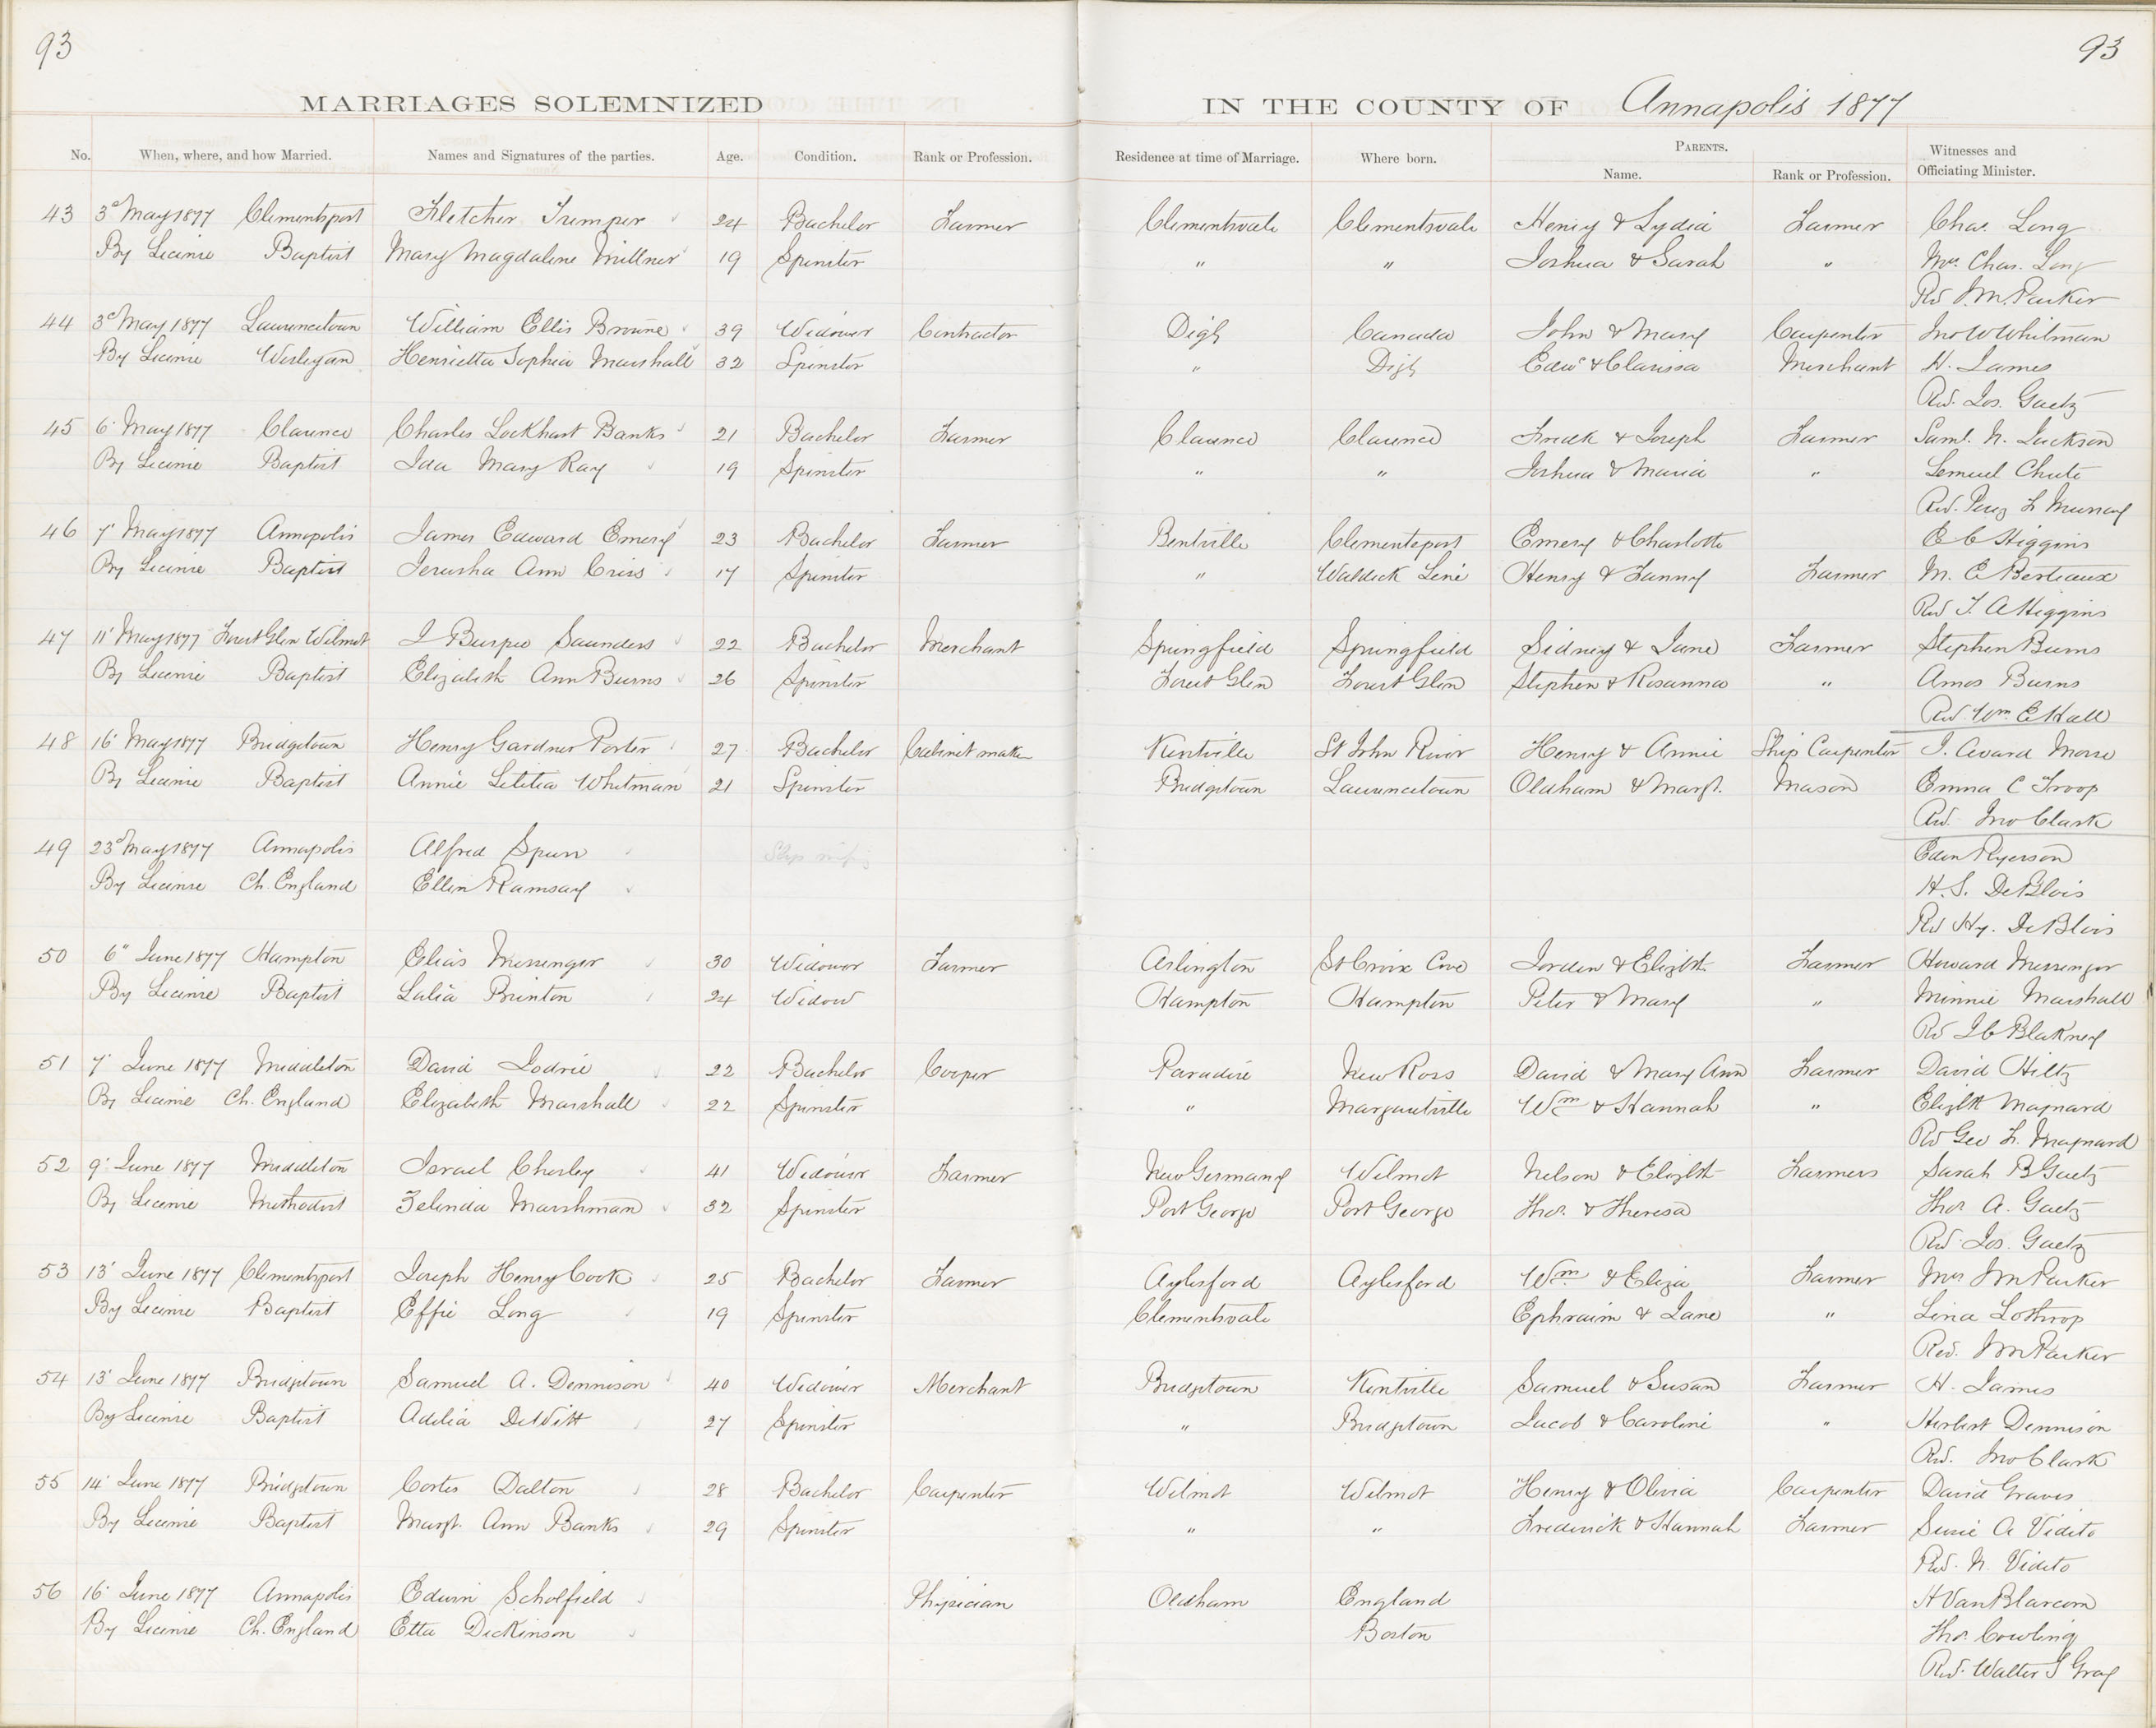 93
93
MARRIAGES SOLEMNIZED IN THE COUNTY OF Annapolis 1877
PARENTS.
No. When, where, and how Married. Names and Signatures of the parties. Age. Condition. Rank or Profession. Residence at time of Marriage. Where born. Name. Rank or Profession. Witnesses and Officiating Minister.
43 3d May 1877 Clementsport Fletcher Trimper 24 Bachelor Farmer Clementsvale Clementsvale Henry & Lydia Farmer Chas. Long
By License Baptist Mary Magdalene Millner 19 Spinster " " Joshua & Sarah " Mrs. Chas. Long
Rev J.M. Parker
44 3d May 1877 Lawrencetown William Ellis Browne 39 Widower Contractor Digby Canada John & Mary Carpenter Jno W Whitman
By License Wesleyan Henrietta Sophia Marshall 32 Spinster " Digby Edwd & Clarissa Merchant H. James
Rev. Jos. Gaetz
45 6' May 1877 Clarence Charles Lockhart Banks 21 Bachelor Farmer Clarence Clarence Fredk & Joseph Farmer Saml. N. Jackson
By License Baptist Ida Mary Ray 19 Spinster " " Joshua & Maria " Lemuel Chute
Rev. Perez F Murray
46 7' May 1877 Annapolis James Edward Emery 23 Bachelor Farmer Bentville Clementsport Emery & Charlotte E C Higgins
By License Baptist Jerusha Ann Criss 17 Spinster " Waldeck Line Henry & Fanny Farmer M. E Berteaux
Rev T. A Higgins
47 11' May 1877 Forest Glen Wilmot J Burpee Saunders 22 Bachelor Merchant Springfield Springfield Sidney & Jane Farmer Stephen Burns
By License Baptist Elizabeth Ann Burns 26 Spinster Forest Glen Forest Glen Stephen & Rosanna " Amos Burns
Rev. Wm. E Hall
48 16' May 1877 Bridgetown Henry Gardner Porter 27 Bachelor Cabinet maker Kentville St John River Henry & Annie Ship Carpenter J. Avard Morse
By License Baptist Annie Letitia Whitman 21 Spinster Bridgetown Lawrencetown Oldham & Margt. Mason Emma C Troop
Rev. Jno Clark
49 23d May 1877 Annapolis Alfred Spurr Eden Ryerson
By License Ch. England Ellen Ramsay H. S. DeBlois
Rev Hy. DeBlois
50 6" June 1877 Hampton Elias Messenger 30 Widower Farmer Arlington St Croix Cove Jorden & Elizbth Farmer Howard Messenger
By License Baptist Lalia Brinton 24 Widow Hampton Hampton Peter & Mary " Minnie Marshall
Rev I C Blakney
51 7' June 1877 Middleton David Lodrie 22 Bachelor Cooper Paradise New Ross David & Mary Ann Farmer David Hiltz
By License Ch. England Elizabeth Marshall 22 Spinster " Margaretville Wm & Hannah " Elizbth Maynard
Rev Geo F. Maynard
52 9' June 1877 Middleton Israel Chesley 41 Widower Farmer New Germany Wilmot Nelson & Elizbth Farmers Sarah B Gaetz
By License Methodist Zelinda Marshman 32 Spinster Port George Port George Thos. & Theresa Thos A. Gaetz
Rev. Jos. Gaetz
53 13' June 1877 Clementsport Joseph Henry Cook 25 Bachelor Farmer Aylesford Aylesford Wm & Eliza Farmer Mrs J M Parker
By License Baptist Effie Long 19 Spinster Clementsvale Ephraim & Jane " Lina Lothrop
Rev. J M Parker
54 13' June 1877 Bridgetown Samuel A. Dennison 40 Widower Merchant Bridgetown Kentville Samuel & Susan Farmer H. James
By License Baptist Adelia DeWitt 27 Spinster " Bridgetown Jacob & Caroline " Herbert Dennison
Rev. Jno Clark
55 14' June 1877 Bridgetown Cortes Dalton 28 Bachelor Carpenter Wilmot Wilmot Henry & Olivia Carpenter David Graves
By License Baptist Margt. Ann Banks 29 Spinster " " Frederick & Hannah Farmer Susie A Vidito
Rev. N. Vidito
56 16' June 1877 Annapolis Edwin Scholfield Physician Oldham England H VanBlarcom
By License Ch. England Etta Dickinson Boston Thos. Cowling
Rev. Walter S Gray